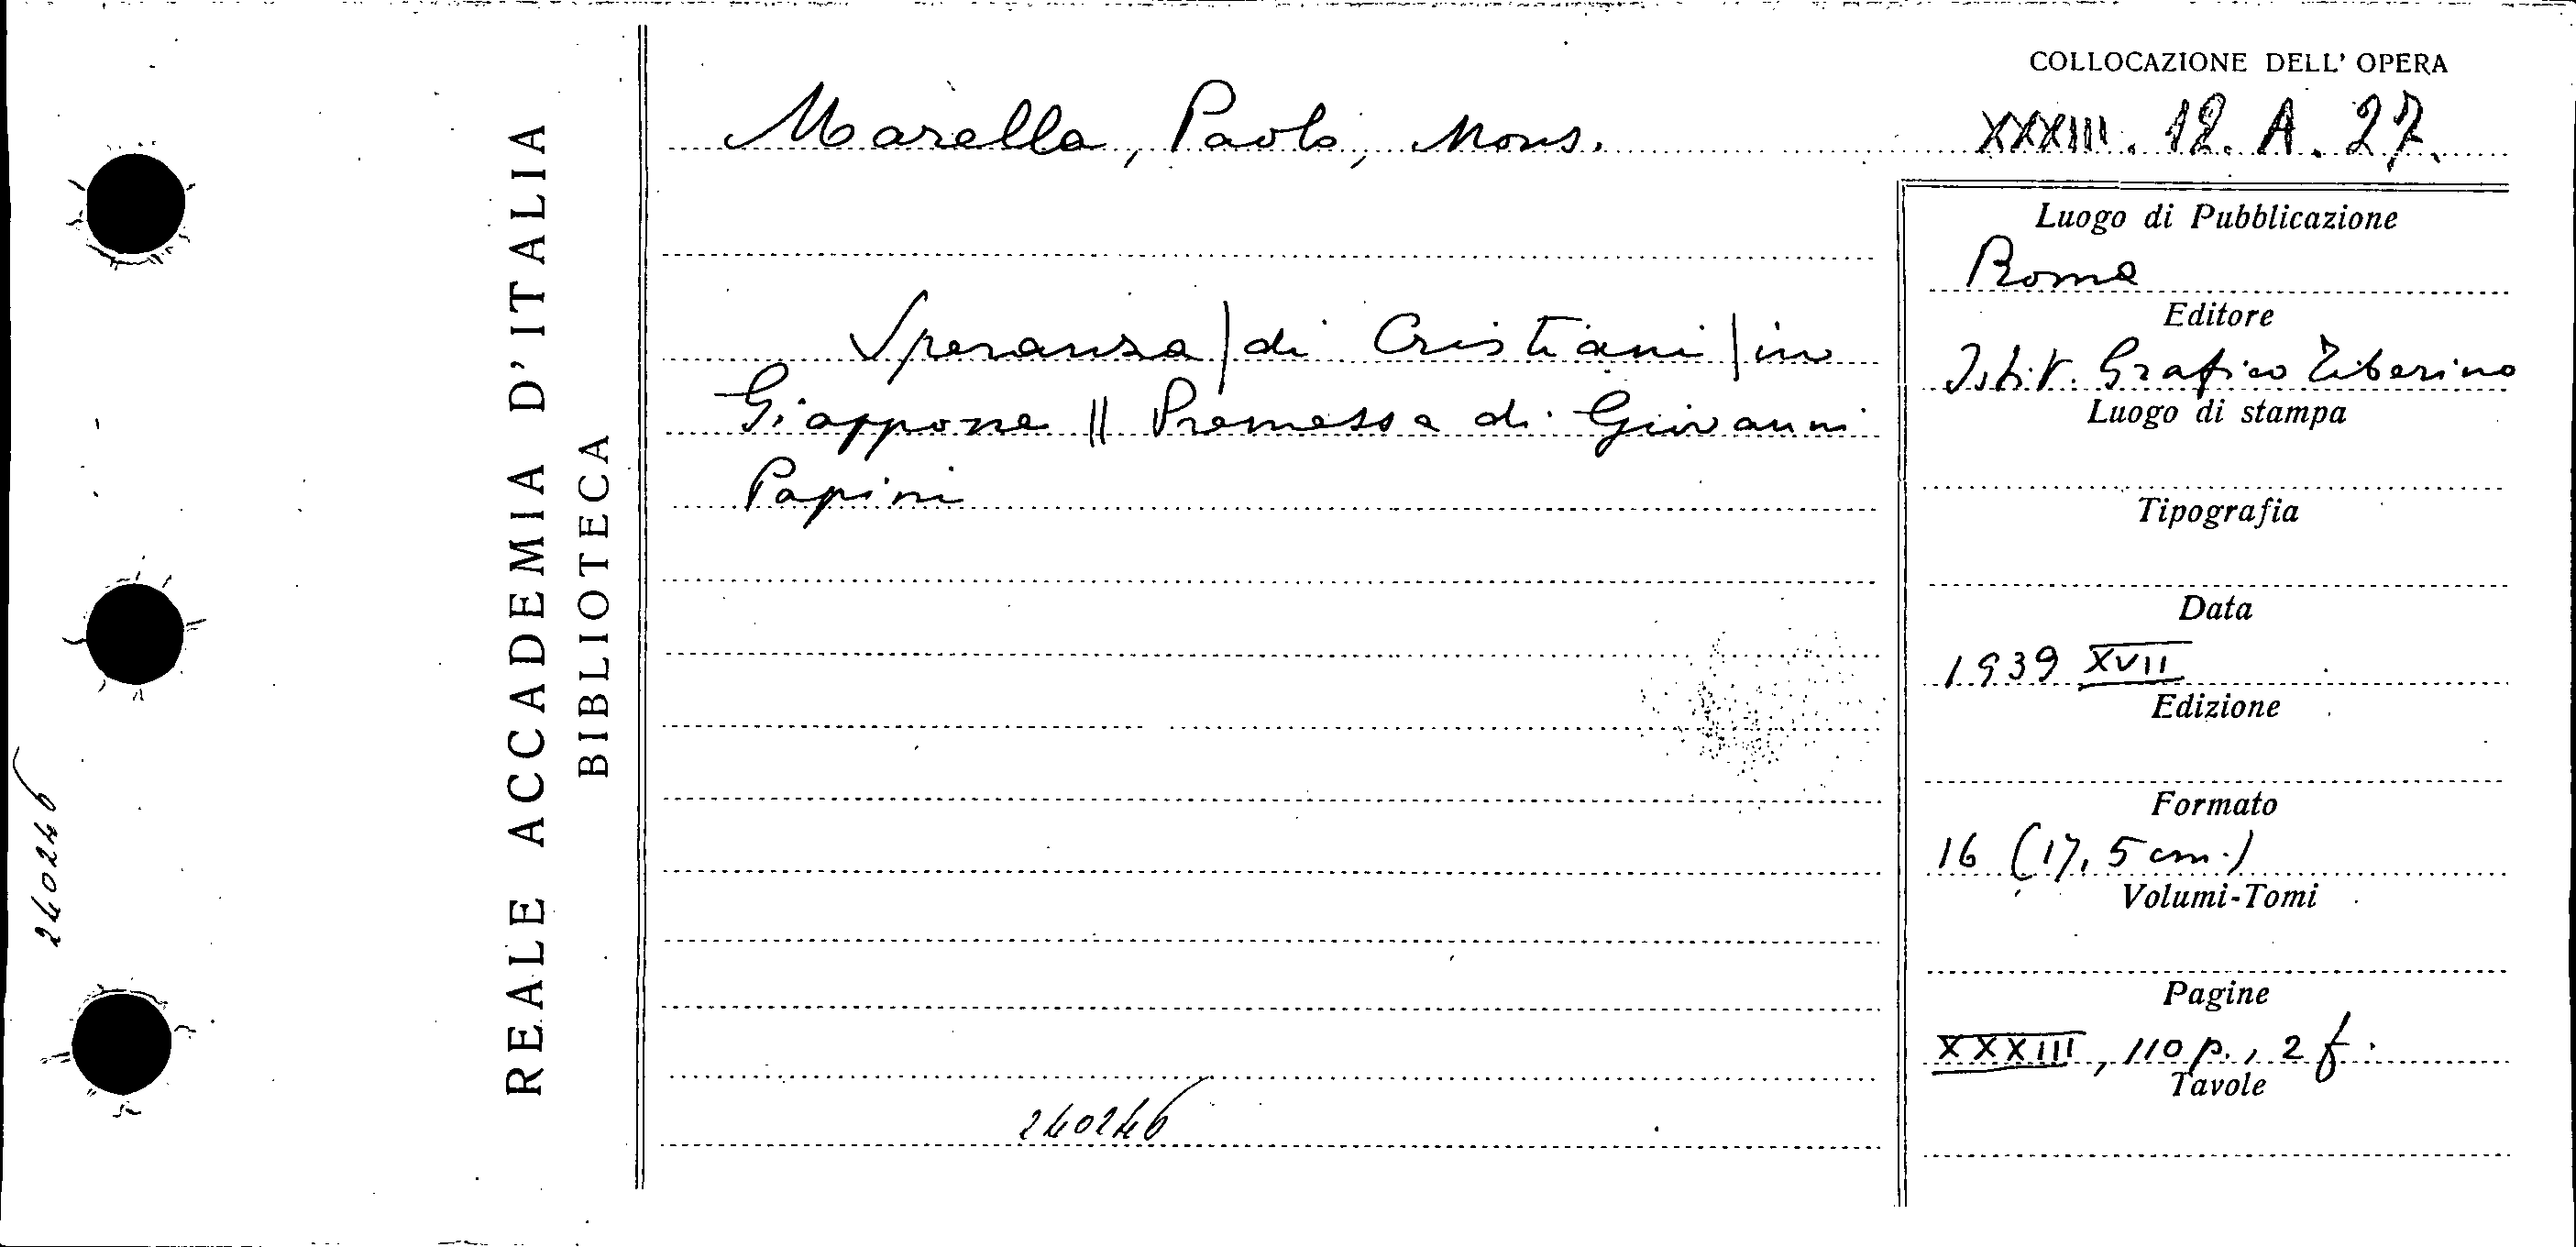 COLLOCAZIONE DELL' OPERA
XXXIII. 12. A. 27.
REALE ACCADEMIA D'ITALIA
BIBLIOTECA
240246
Marella, Paolo, Mons.
Speranza | di Cristiani | in
Giappone || Premessa di Giovanni
Papini
240246
Luogo di Pubblicazione
Roma
Editore
Istit. Grafico Tiberino
Luogo di stampa
Tipografia
Data
1939 XVII
Edizione
Formato
16 (17,5 cm.)
Volumi-Tomi
Pagine
XXXIII, 110 p., 2 f.
Tavole